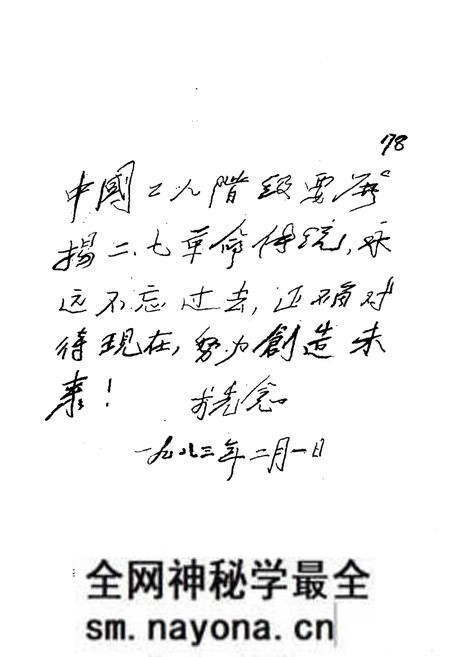 78
中國工人階段要發
揚二、七革命传统,永
远不忘过去,正确对
待現在,努力創造未
来!李先念
一九八三年二月一日
全网神秘学最全
sm.nayona.cn